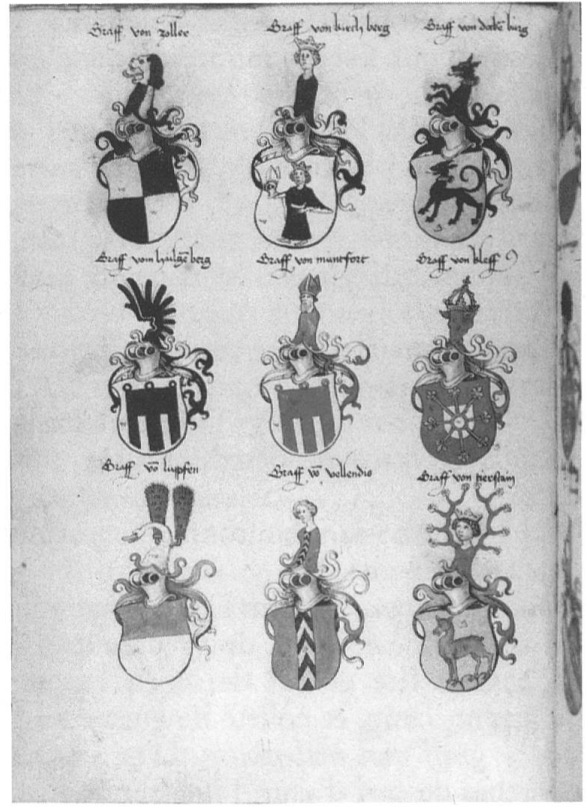 Graff von zoller
Graff von kirch berg
Graff von docke burg
Graff vom hailgē berg
Graff von muntfort
Graff von kleff
Graff vō luppfen
Graff vō vellendis
Graff von tierstain